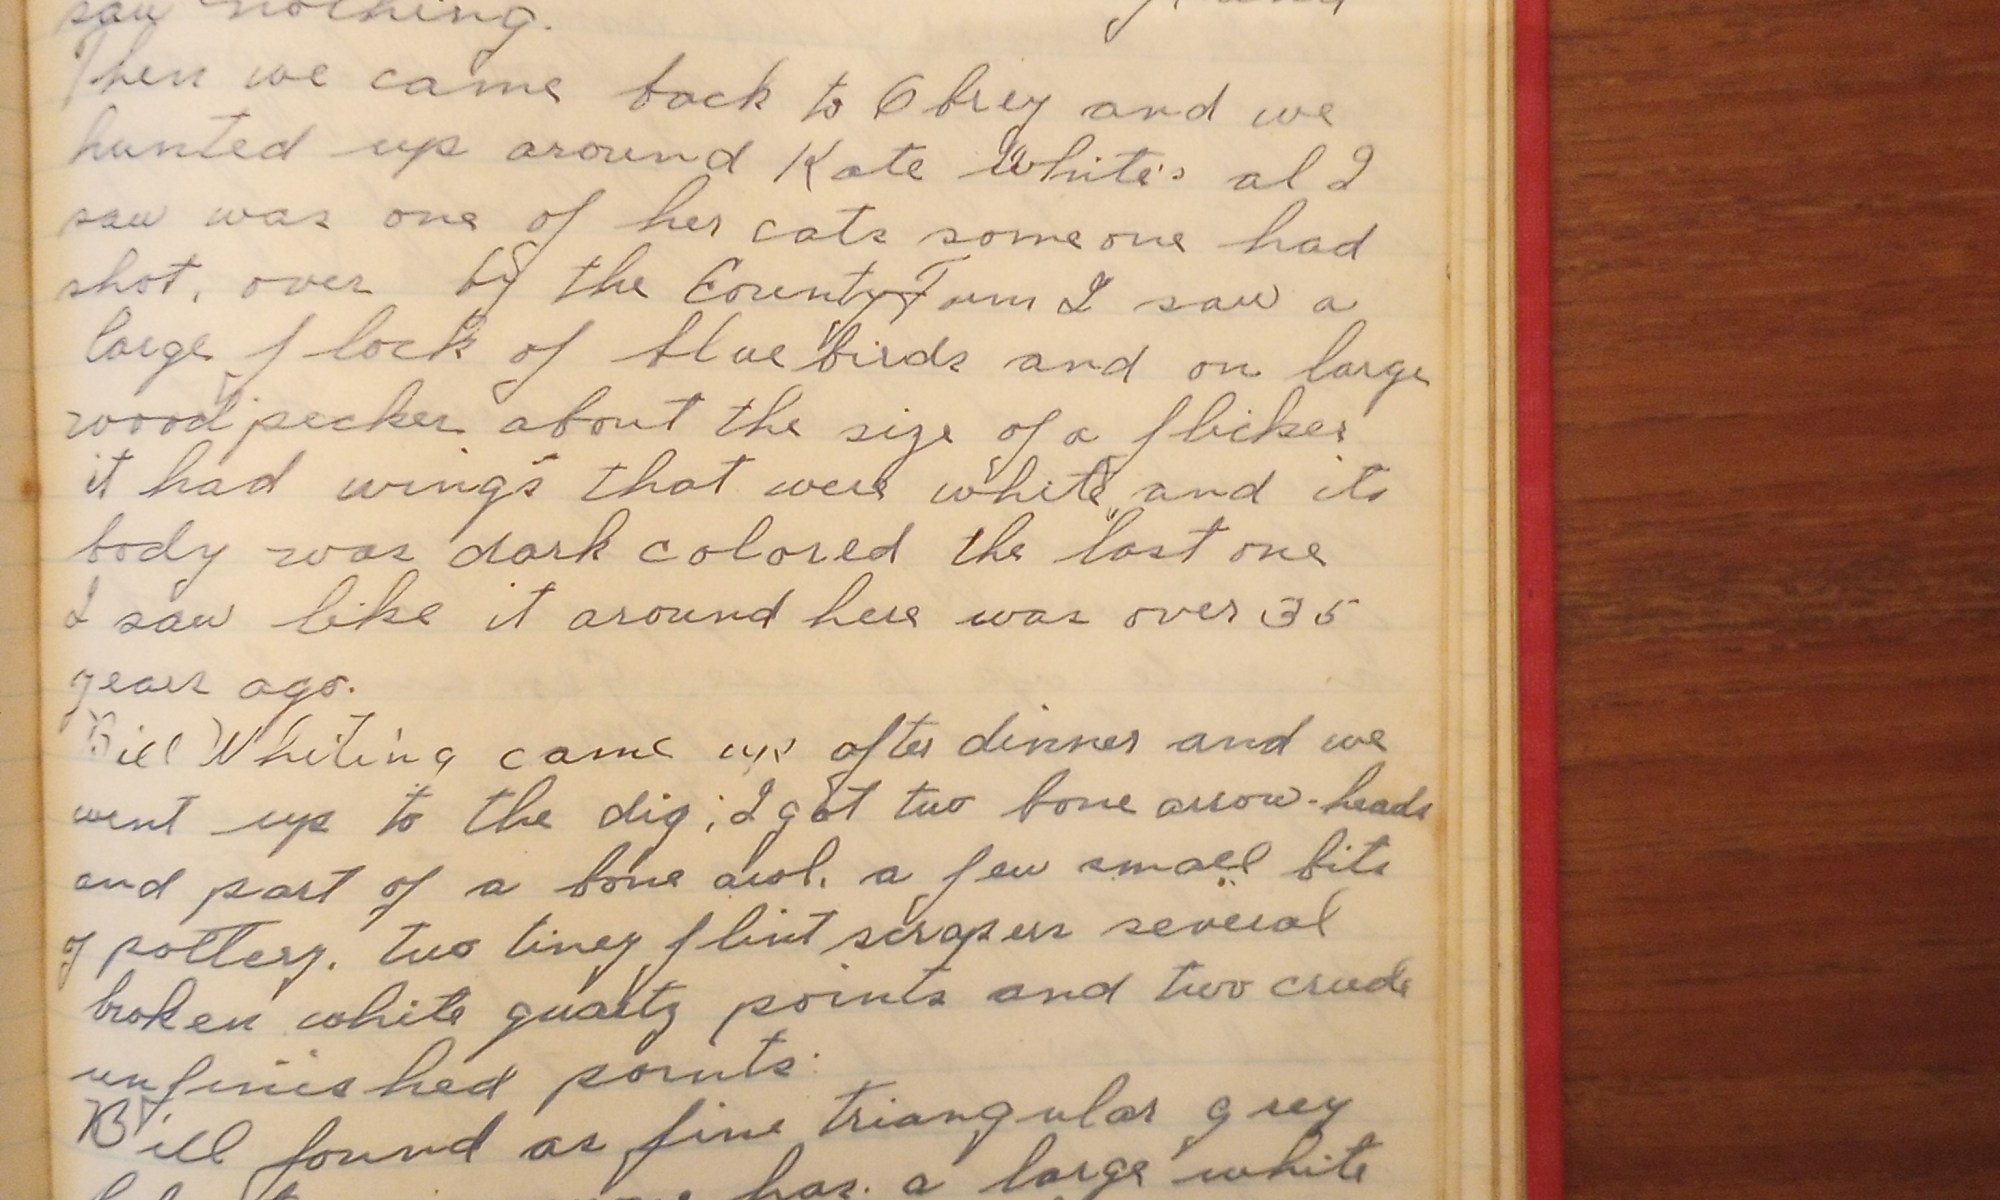 saw nothing.
Then we came back to Obrey and we
hunted up around Kate White's al I
saw was one of her cats someone had
shot, over by the County Farm I saw a
large flock of blue birds and on large
woodpecker about the size of a flicker
it had wings that were white and its
body was dark colored the last one
I saw like it around here was over 35
years ago.
Bill Whiting came up after dinner and we
went up to the dig; I got two bone arrow-heads
and part of a bone awl. a few small bits
of pottery. two tiney flint scrapers several
broken white quartz points and two crude
unfinished points.
Bill found as fine triangular grey
has a large white